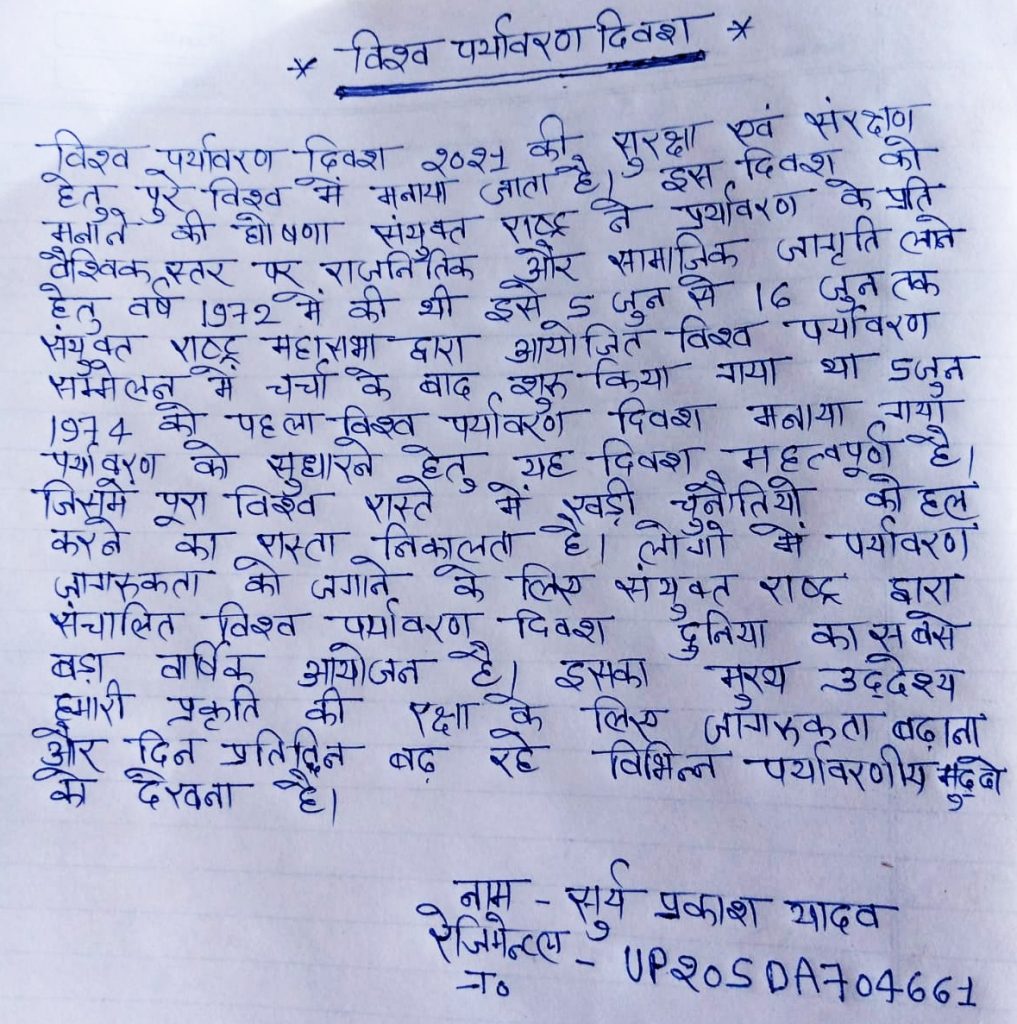 * विश्व पर्यावरण दिवश *
विश्व पर्यावरण दिवश २०२१ की सुरक्षा एवं संरक्षण
हेतु पुरे विश्व में मनाया जाता है। इस दिवश को
मनाने की घोषणा संयुक्त राष्ट्र ने पर्यावरण के प्रति
वैश्विक स्तर पर राजनितिक और सामाजिक जागृति लाने
हेतु वर्ष 1972 में की थी इसे 5 जुन से 16 जुन तक
संयुक्त राष्ट्र महासभा द्वारा आयोजित विश्व पर्यावरण
सम्मेलन में चर्चा के बाद शुरू किया गया था 5जुन
1974 को पहला विश्व पर्यावरण दिवश मनाया गया
पर्यावरण को सुधारने हेतु यह दिवश महत्वपूर्ण है।
जिसमे पूरा विश्व रास्ते में खड़ी चुनैतियो को हल
करने का रास्ता निकालता है। लोगो में पर्यावरण
जागरुकता को जगाने के लिए संयुक्त राष्ट्र द्वारा
संचालित विश्व पर्यावरण दिवश दुनिया का सबसे
बड़ा वार्षिक आयोजन है। इसका मुख्य उद्देश्य
हमारी प्रकृति की रक्षा के लिए जागरुकता बढ़ाना
और दिन प्रतिदिन बढ़ रहे विभिन्न पर्यावरणीय मुद्दो
को देखना है।
नाम - सुर्य प्रकाश यादव
रेजिमेन्टल - UP20SDA704661
न०